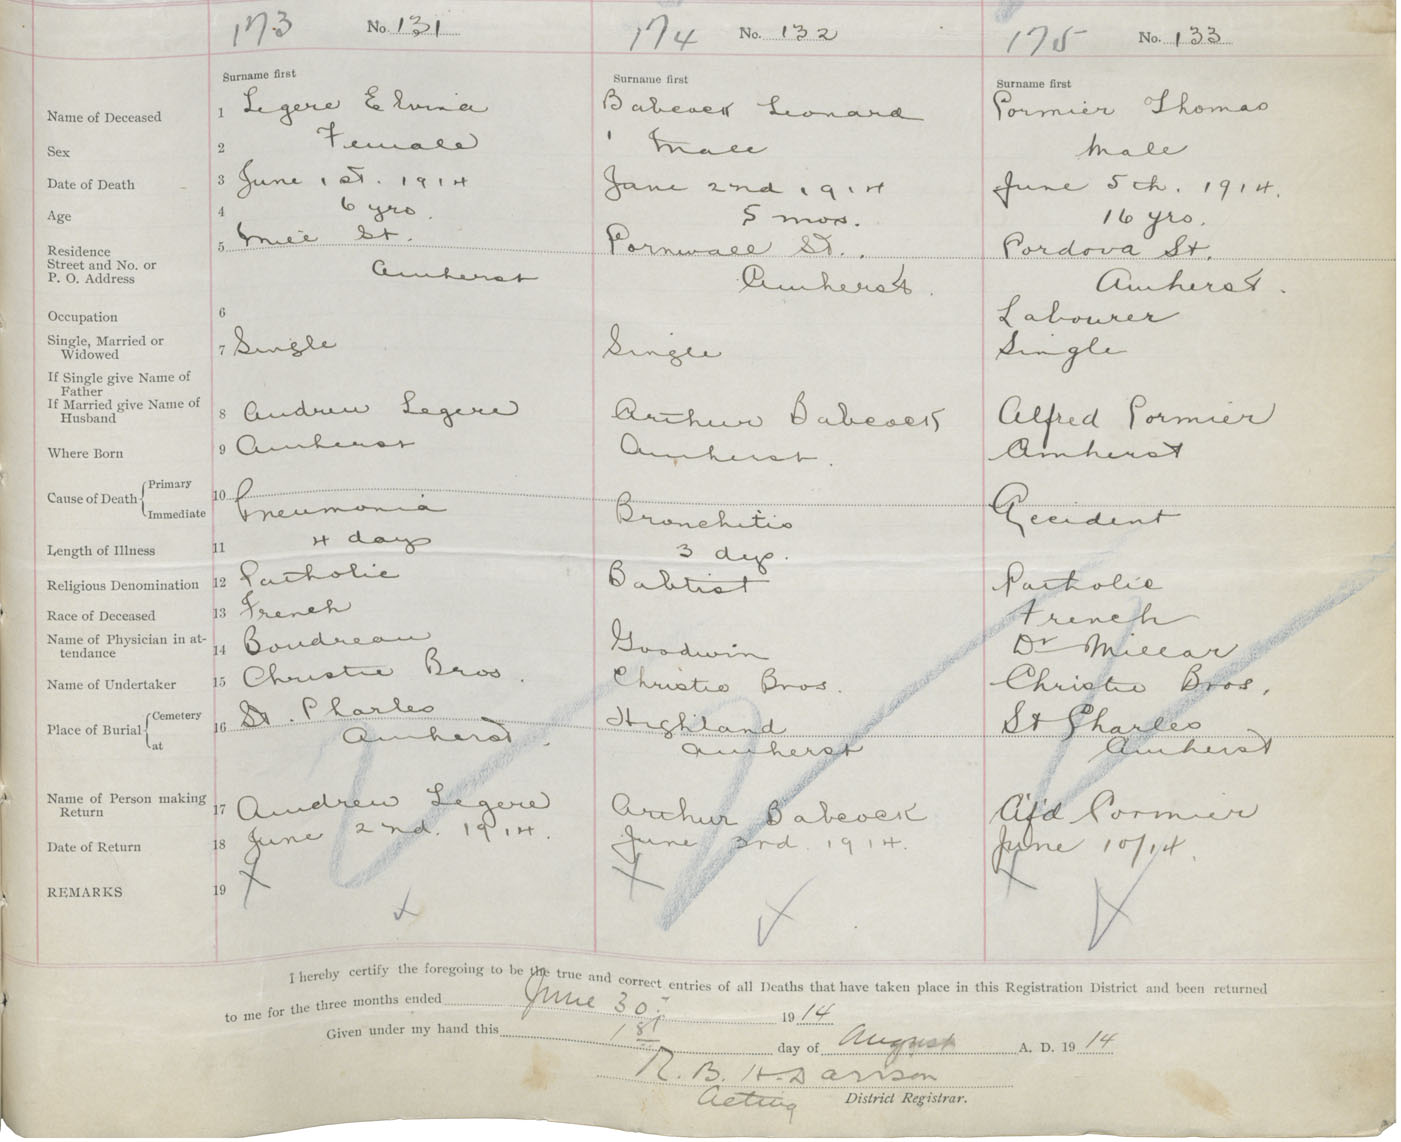 173 No. 131 174 No. 132 175 No. 133
Surname first Surname first Surname first
Name of Deceased 1 Legere Elvina Babcock Leonard Cormier Thomas
Sex 2 Female Male Male
Date of Death 3 June 1st. 1914 June 2nd 1914 June 5th. 1914.
Age 4 6 yrs. 5 mos. 16 yrs.
Residence 5 Mill St. Cornwall St. Cordova St.
Street and No. or
P. O. Address Amherst Amherst. Amherst.
Occupation 6 Labourer
Single, Married or
Widowed 7 Single Single Single
If Single give Name of
Father
If Married give Name of
Husband 8 Andrew Legere Arthur Babcock Alfred Cormier
Where Born 9 Amherst Amherst. Amherst
Cause of Death Primary 10
Immediate Pneumonia Bronchitis Accident
Length of Illness 11 4 days 3 dys.
Religious Denomination 12 Catholic Babtist Catholic
Race of Deceased 13 French French
Name of Physician in at-
tendance 14 Boudreau Goodwin Dr Millar
Name of Undertaker 15 Christie Bros. Christie Bros. Christie Bros.
Place of Burial Cemetery 16 St. Charles Highland St Charles
at Amherst. Amherst Amherst
Name of Person making
Return 17 Andrew Legere Arthur Babcock Alf'd Cormier
Date of Return 18 June 2nd. 1914. June 3rd. 1914. June 10/14.
REMARKS 19 X X X
I hereby certify the foregoing to be the true and correct entries of all Deaths that have taken place in this Registration District and been returned
to me for the three months ended June 30. 1914
Given under my hand this 1st day of August A. D. 1914
Acting District Registrar.